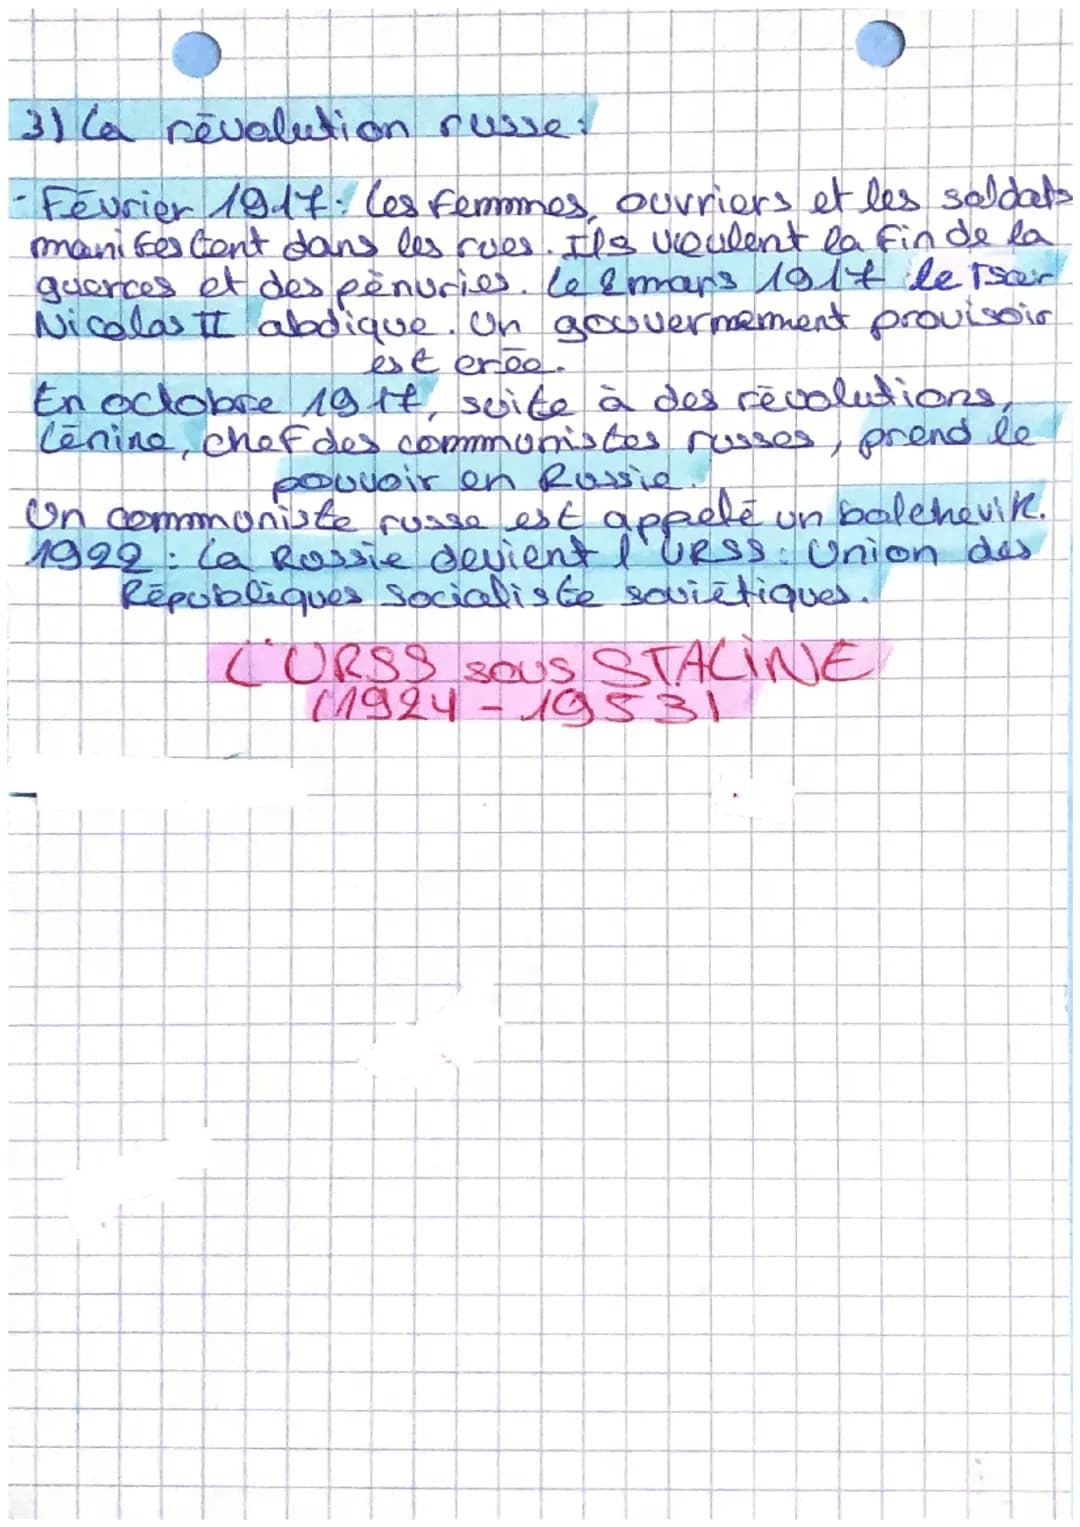 3) La révolution russe:
- Février 1917: Les femmes, ouvriers et les soldats
manifestent dans les rues. Ils veulent la fin de la
guerres et des pénuries. Le 2 mars 1917 le Tsar
Nicolas II abdique. Un gouvernement provisoir
est crée.
En octobre 1917, suite à des révolutions,
Lénine, chef des communistes russes, prend le
pouvoir en Russie.
Un communiste russe est appelé un bolchevik.
1922: La Russie devient l'URSS: Union des
Républiques Socialiste soviétiques.
L'URSS sous STALINE
(1924-1953)